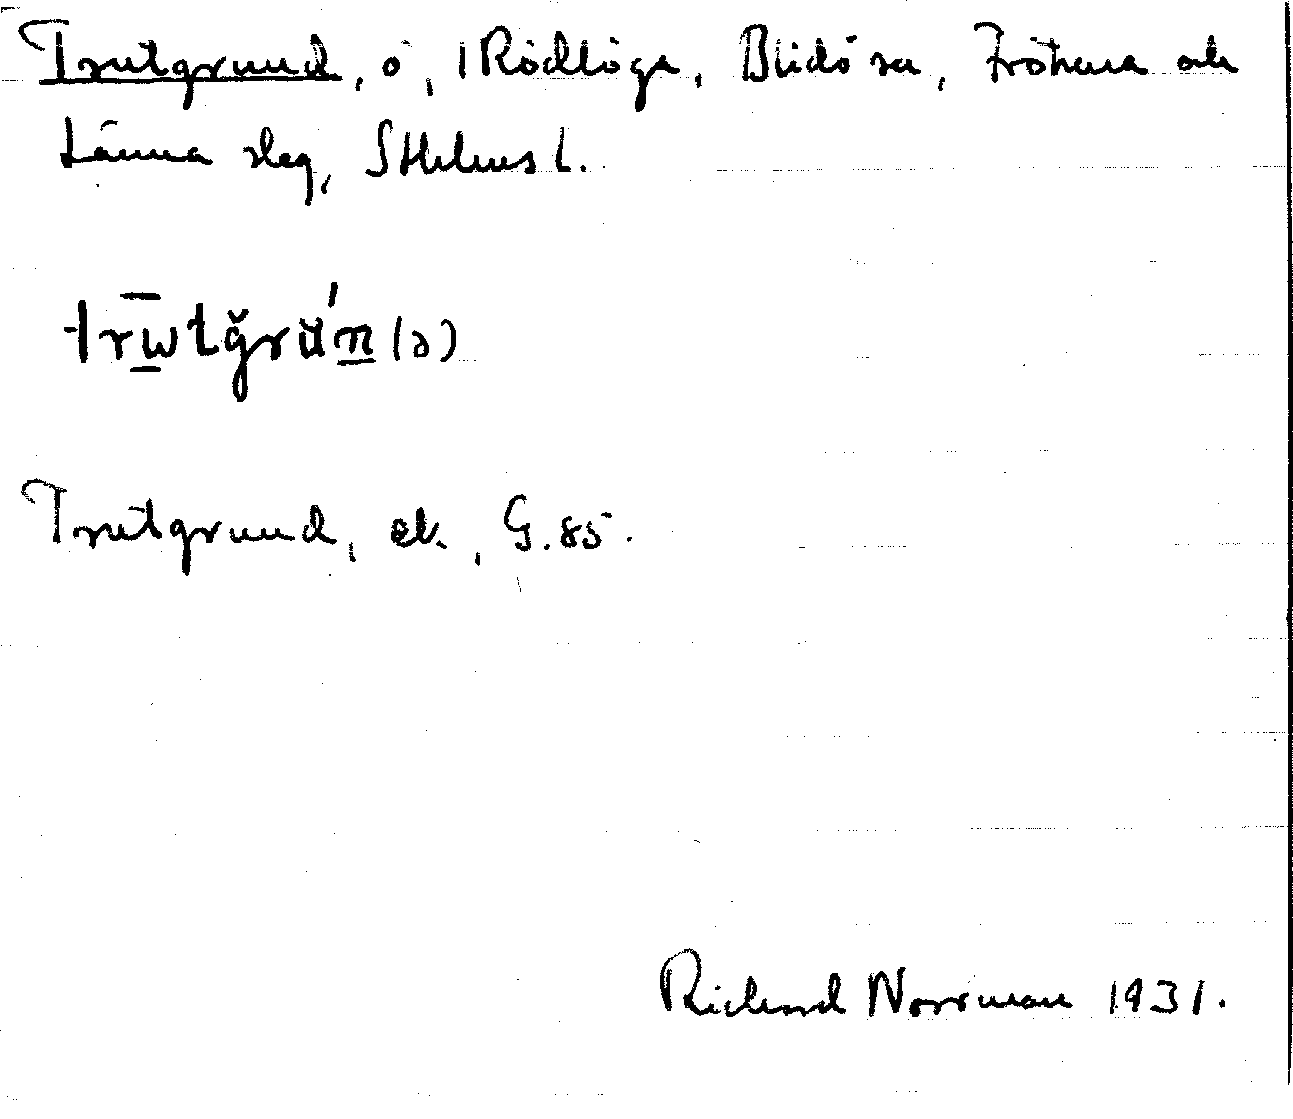 Trutgrund, ö, i Rödlöga, Blidö sn, Frötuna och
Länna slg, Sthlms l.
Trutgrund, ek., G. 85.
Richard Norrman 1931.